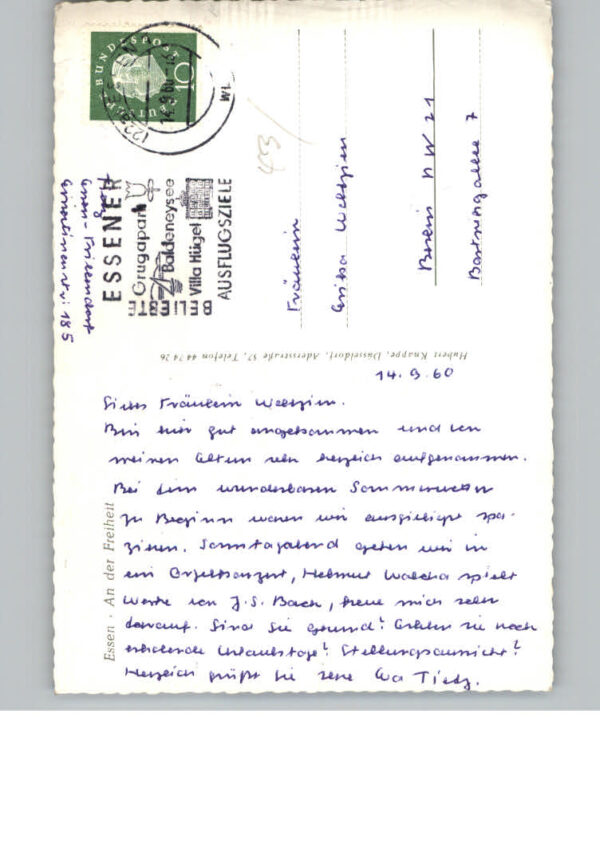 DEUTSCHE BUNDESPOST
10
14.9.60
ESSENER
Grugapark
Baldeneysee
Villa Hügel
BELIEBTE
AUSFLUGSZIELE
Essen-
185
Fräulein
Weltzien
Berlin NW 21
7
Hubert Knappe, Düsseldorf, Adersstraße 57, Telefon 44 74 26
Essen · An der Freiheit
14.9.60
Liebes Fräulein Weltzien.
Bin hier gut angekommen und von
meinen Eltern sehr herzlich aufgenommen.
Bei dem wunderbaren Sommerwetter
zu Beginn waren wir ausgiebigst spa-
zieren. Sonntagabend gehen wir in
ein Orgelkonzert, Helmut Walcha spielt
Werke von J.S. Bach, freue mich sehr
darauf. Sind Sie gesund? Erleben Sie noch
erholende Urlaubstage? Stellungsaussicht?
Herzlich grüßt Sie Ihre Eva Tietz.